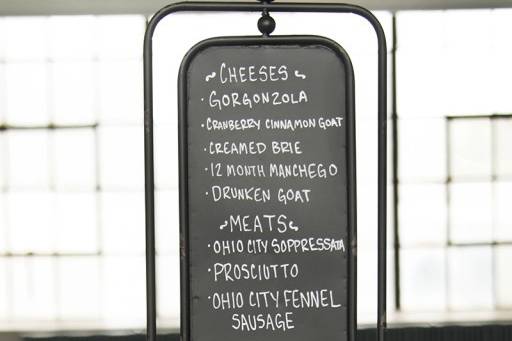 ~ CHEESES ~
· GORGONZOLA
· CRANBERRY CINNAMON GOAT
· CREAMED BRIE
· 12 MONTH MANCHEGO
· DRUNKEN GOAT
~ MEATS ~
· OHIO CITY SOPPRESSATA
· PROSCIUTTO
· OHIO CITY FENNEL
SAUSAGE